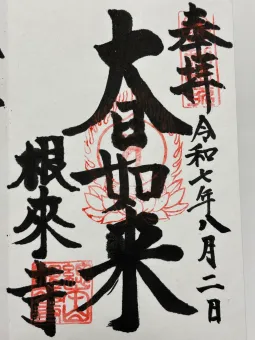 奉拝
令和七年八月二日
大日如来
根来寺